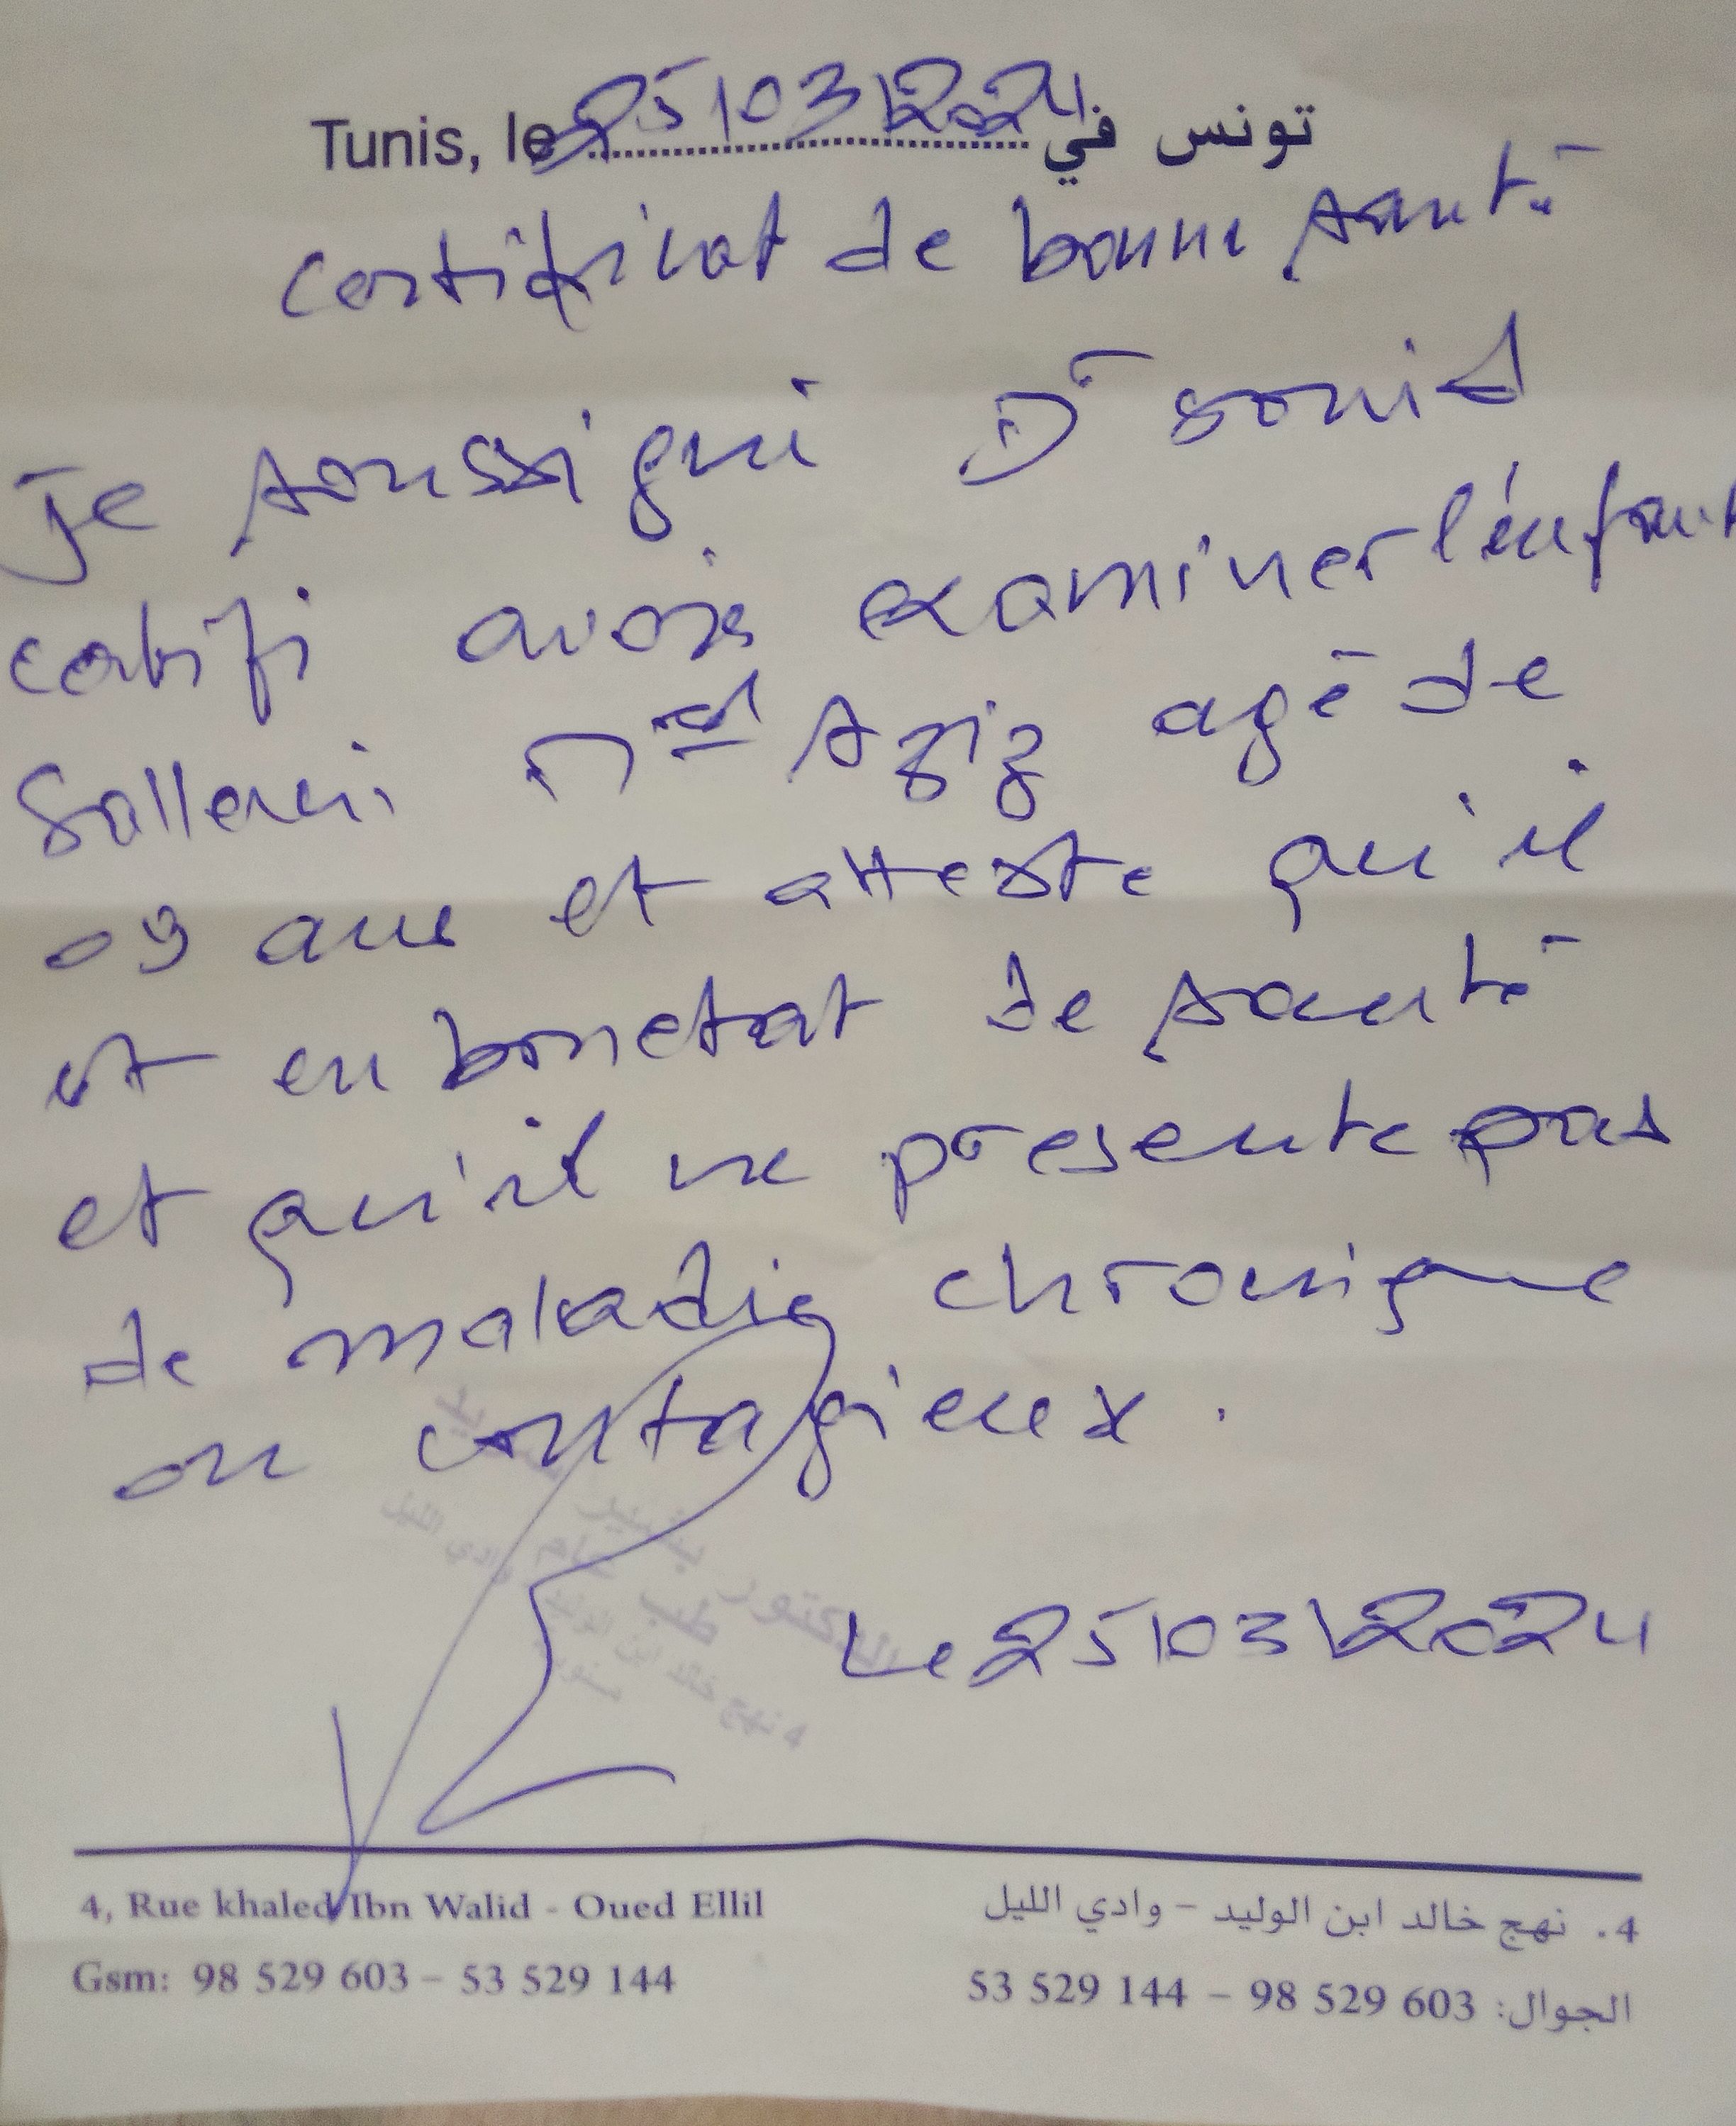 Tunis, le 25/03/2024 تونس في
certificat de bonne santé
Je soussigni Dr sonia
certifi avoir examiner l'énfant
Sallemi Med Aziz agé de
09 ans et atteste qu'il
est en bon etat de santé
et qu'il ne presente pas
de maladie chronique
ou contagieux.
Le 25/03/2024
4, Rue khaled Ibn Walid - Oued Ellil
4. نهج خالد ابن الوليد - وادي الليل
Gsm: 98 529 603 – 53 529 144
الجوال: 98 529 603 – 53 529 144